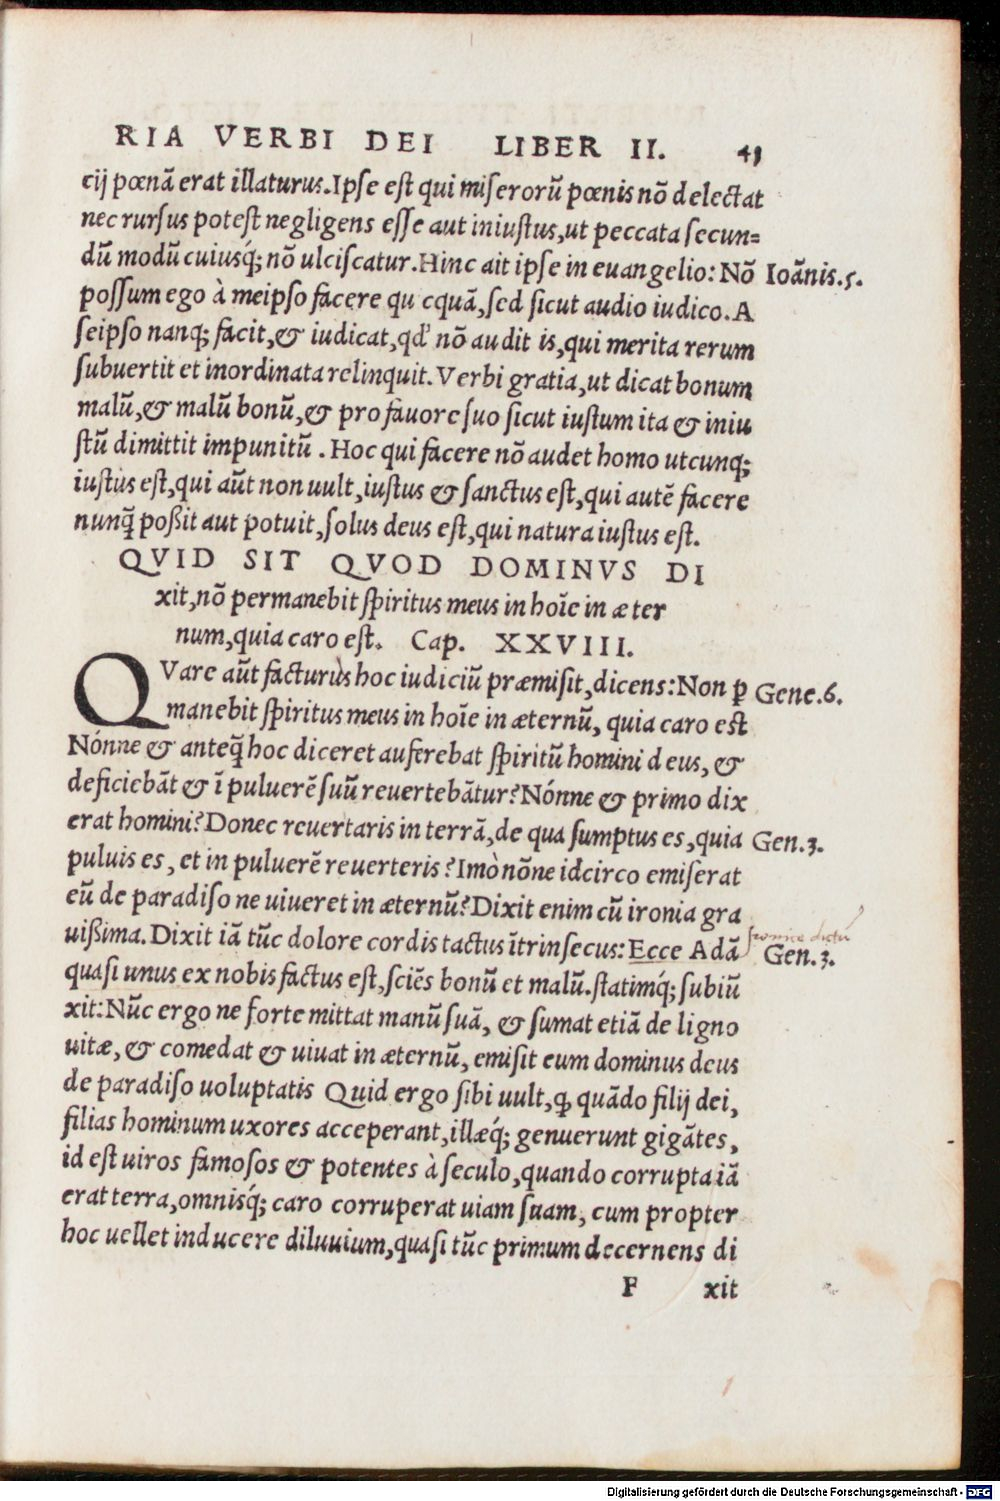 RIA VERBI DEI LIBER II. 41
cij pœnā erat illaturus. Ipse est qui miserorū pœnis nō delectat
nec rursus potest negligens esse aut iniustus, ut peccata secun=
dū modū cuiusq́; nō ulciscatur. Hinc ait ipse in euangelio: Nō Ioānis. 5.
possum ego à meipso facere qu cquā, sed sicut audio iudico. A
seipso nanq; facit, & iudicat, qd' nō audit is, qui merita rerum
subuertit et inordinata relinquit. Verbi gratia, ut dicat bonum
malū, & malū bonū, & pro fauore suo sicut iustum ita & iniu
stū dimittit impunitū. Hoc qui facere nō audet homo utcunq;
iustus est, qui aūt non uult, iustus & sanctus est, qui autē facere
nunq̄ poßit aut potuit, solus deus est, qui natura iustus est.
QVID SIT QVOD DOMINVS DI
xit, nō permanebit spiritus meus in hoīe in æter
num, quia caro est. Cap. XXVIII.
QVare aūt facturus hoc iudiciū præmisit, dicens: Non ꝑ Gene. 6.
manebit spiritus meus in hoīe in æternū, quia caro est
Nónne & anteq̄ hoc diceret auferebat spiritū homini deus, &
deficiebāt & ī puluerē suū reuertebātur? Nónne & primo dix
erat homini? Donec reuertaris in terrā, de qua sumptus es, quia Gen. 3.
puluis es, et in puluerē reuerteris? Imò nōne idcirco emiserat
eū de paradiso ne uiueret in æternū? Dixit enim cū ironia gra
uißima. Dixit iā tūc dolore cordis tactus ītrinsecus: Ecce Adā Ironice dictū Gen. 3.
quasi unus ex nobis factus est, sciēs bonū et malū. statimq́; subiū
xit: Nūc ergo ne forte mittat manū suā, & sumat etiā de ligno
uitæ, & comedat & uiuat in æternū, emisit eum dominus deus
de paradiso uoluptatis Quid ergo sibi uult, ꝙ quādo filij dei,
filias hominum uxores acceperant, illæq́; genuerunt gigātes,
id est uiros famosos & potentes à seculo, quando corrupta iā
erat terra, omnisq́; caro corruperat uiam suam, cum propter
hoc uellet inducere diluuium, quasi tūc primum decernens di
F xit
Digitalisierung gefördert durch die Deutsche Forschungsgemeinschaft - DFG